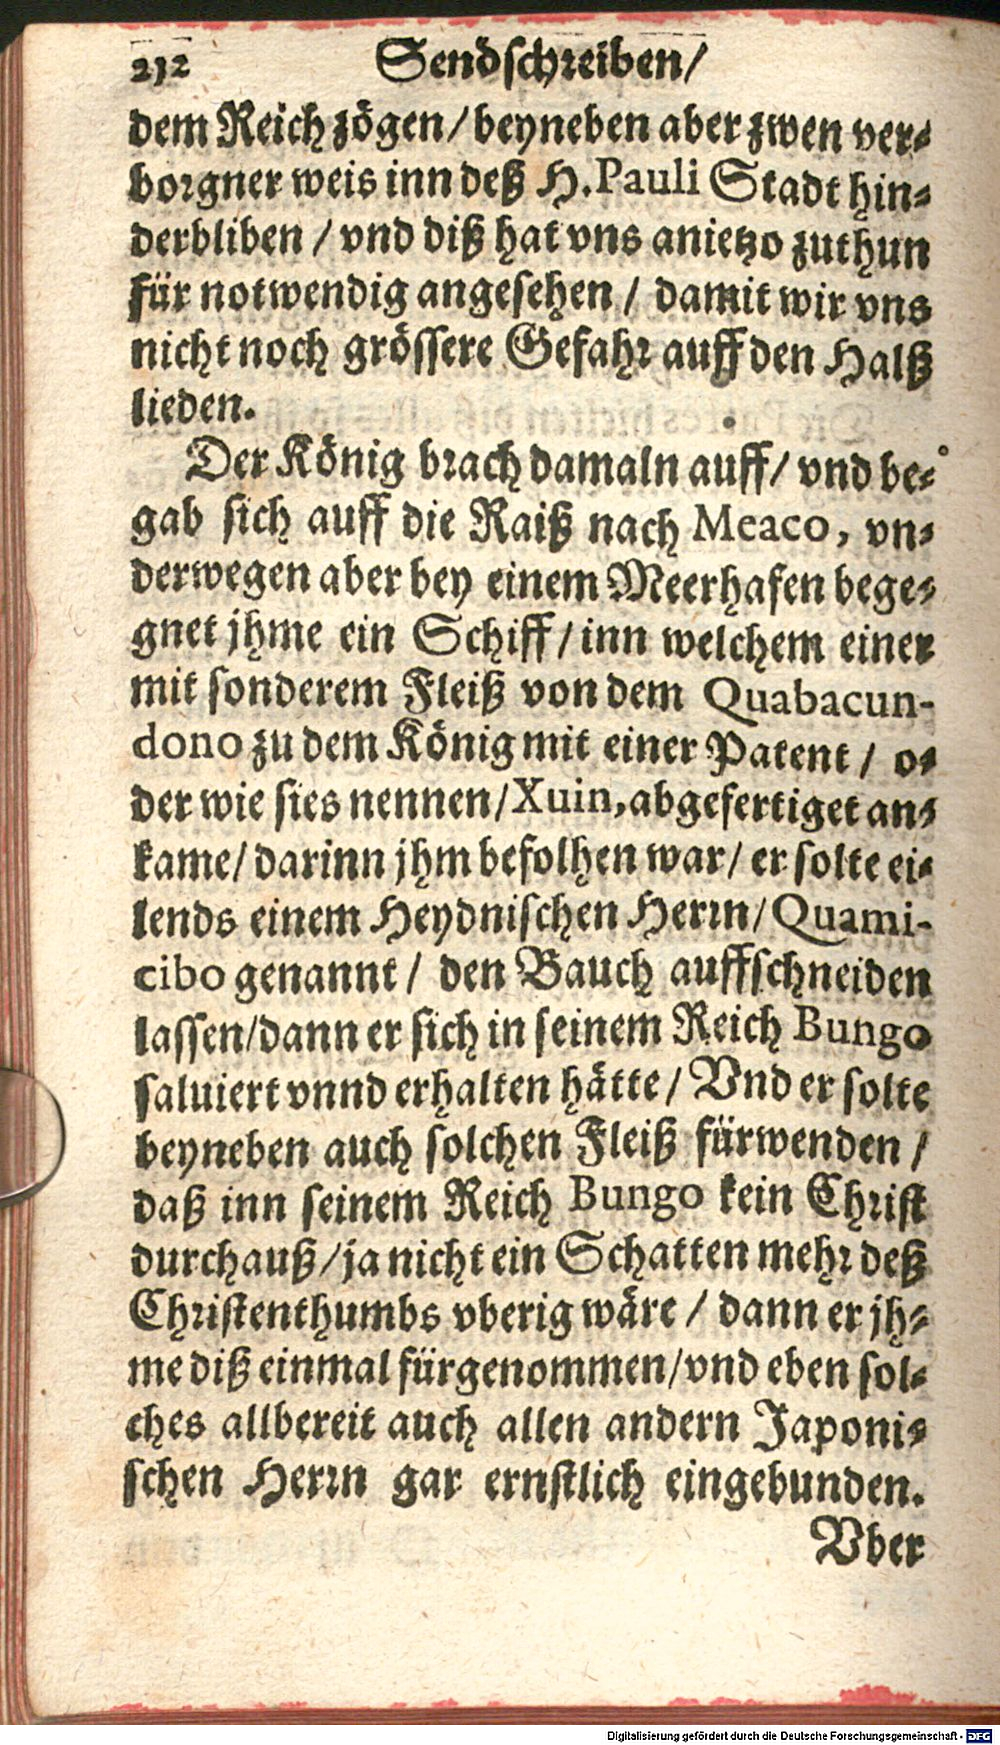 212 Sendschreiben/
dem Reich zögen/ beyneben aber zwen ver-
borgner weis inn deß H. Pauli Stadt hin-
derbliben / vnd diß hat vns anietzo zuthun
für notwendig angesehen / damit wir vns
nicht noch grössere Gefahr auff den Halß
lieden.
Der König brach damaln auff/ vnd be-
gab sich auff die Raiß nach Meaco, vn-
derwegen aber bey einem Meerhafen bege-
gnet jhme ein Schiff/ inn welchem einer
mit sonderem Fleiß von dem Quabacun-
dono zu dem König mit einer Patent / o-
der wie sies nennen/ Xuin, abgefertiget an-
kame/ darinn jhm befolhen war/ er solte ei-
lends einem Heydnischen Herrn/ Quami-
cibo genannt / den Bauch auffschneiden
lassen/ dann er sich in seinem Reich Bungo
saluiert vnnd erhalten hätte / Vnd er solte
beyneben auch solchen Fleiß fürwenden /
daß inn seinem Reich Bungo kein Christ
durchauß/ ja nicht ein Schatten mehr deß
Christenthumbs vberig wäre / dann er jh-
me diß einmal fürgenommen/ vnd eben sol-
ches allbereit auch allen andern Japoni-
schen Herrn gar ernstlich eingebunden.
Vber
Digitalisierung gefördert durch die Deutsche Forschungsgemeinschaft - DFG